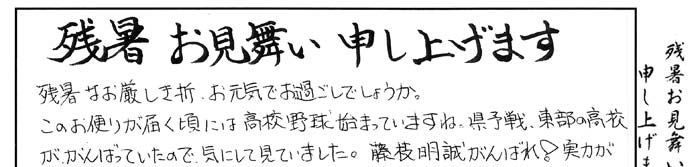 残暑お見舞い申し上げます
残暑なお厳しき折、お元気でお過ごしでしょうか。
このお便りが届く頃には高校野球始まっていますね。県予戦、東部の高校
が、がんばっていたので、気にして見ていました。藤枝明誠がんばれ♡実力が
残暑お見舞い
申し上げま